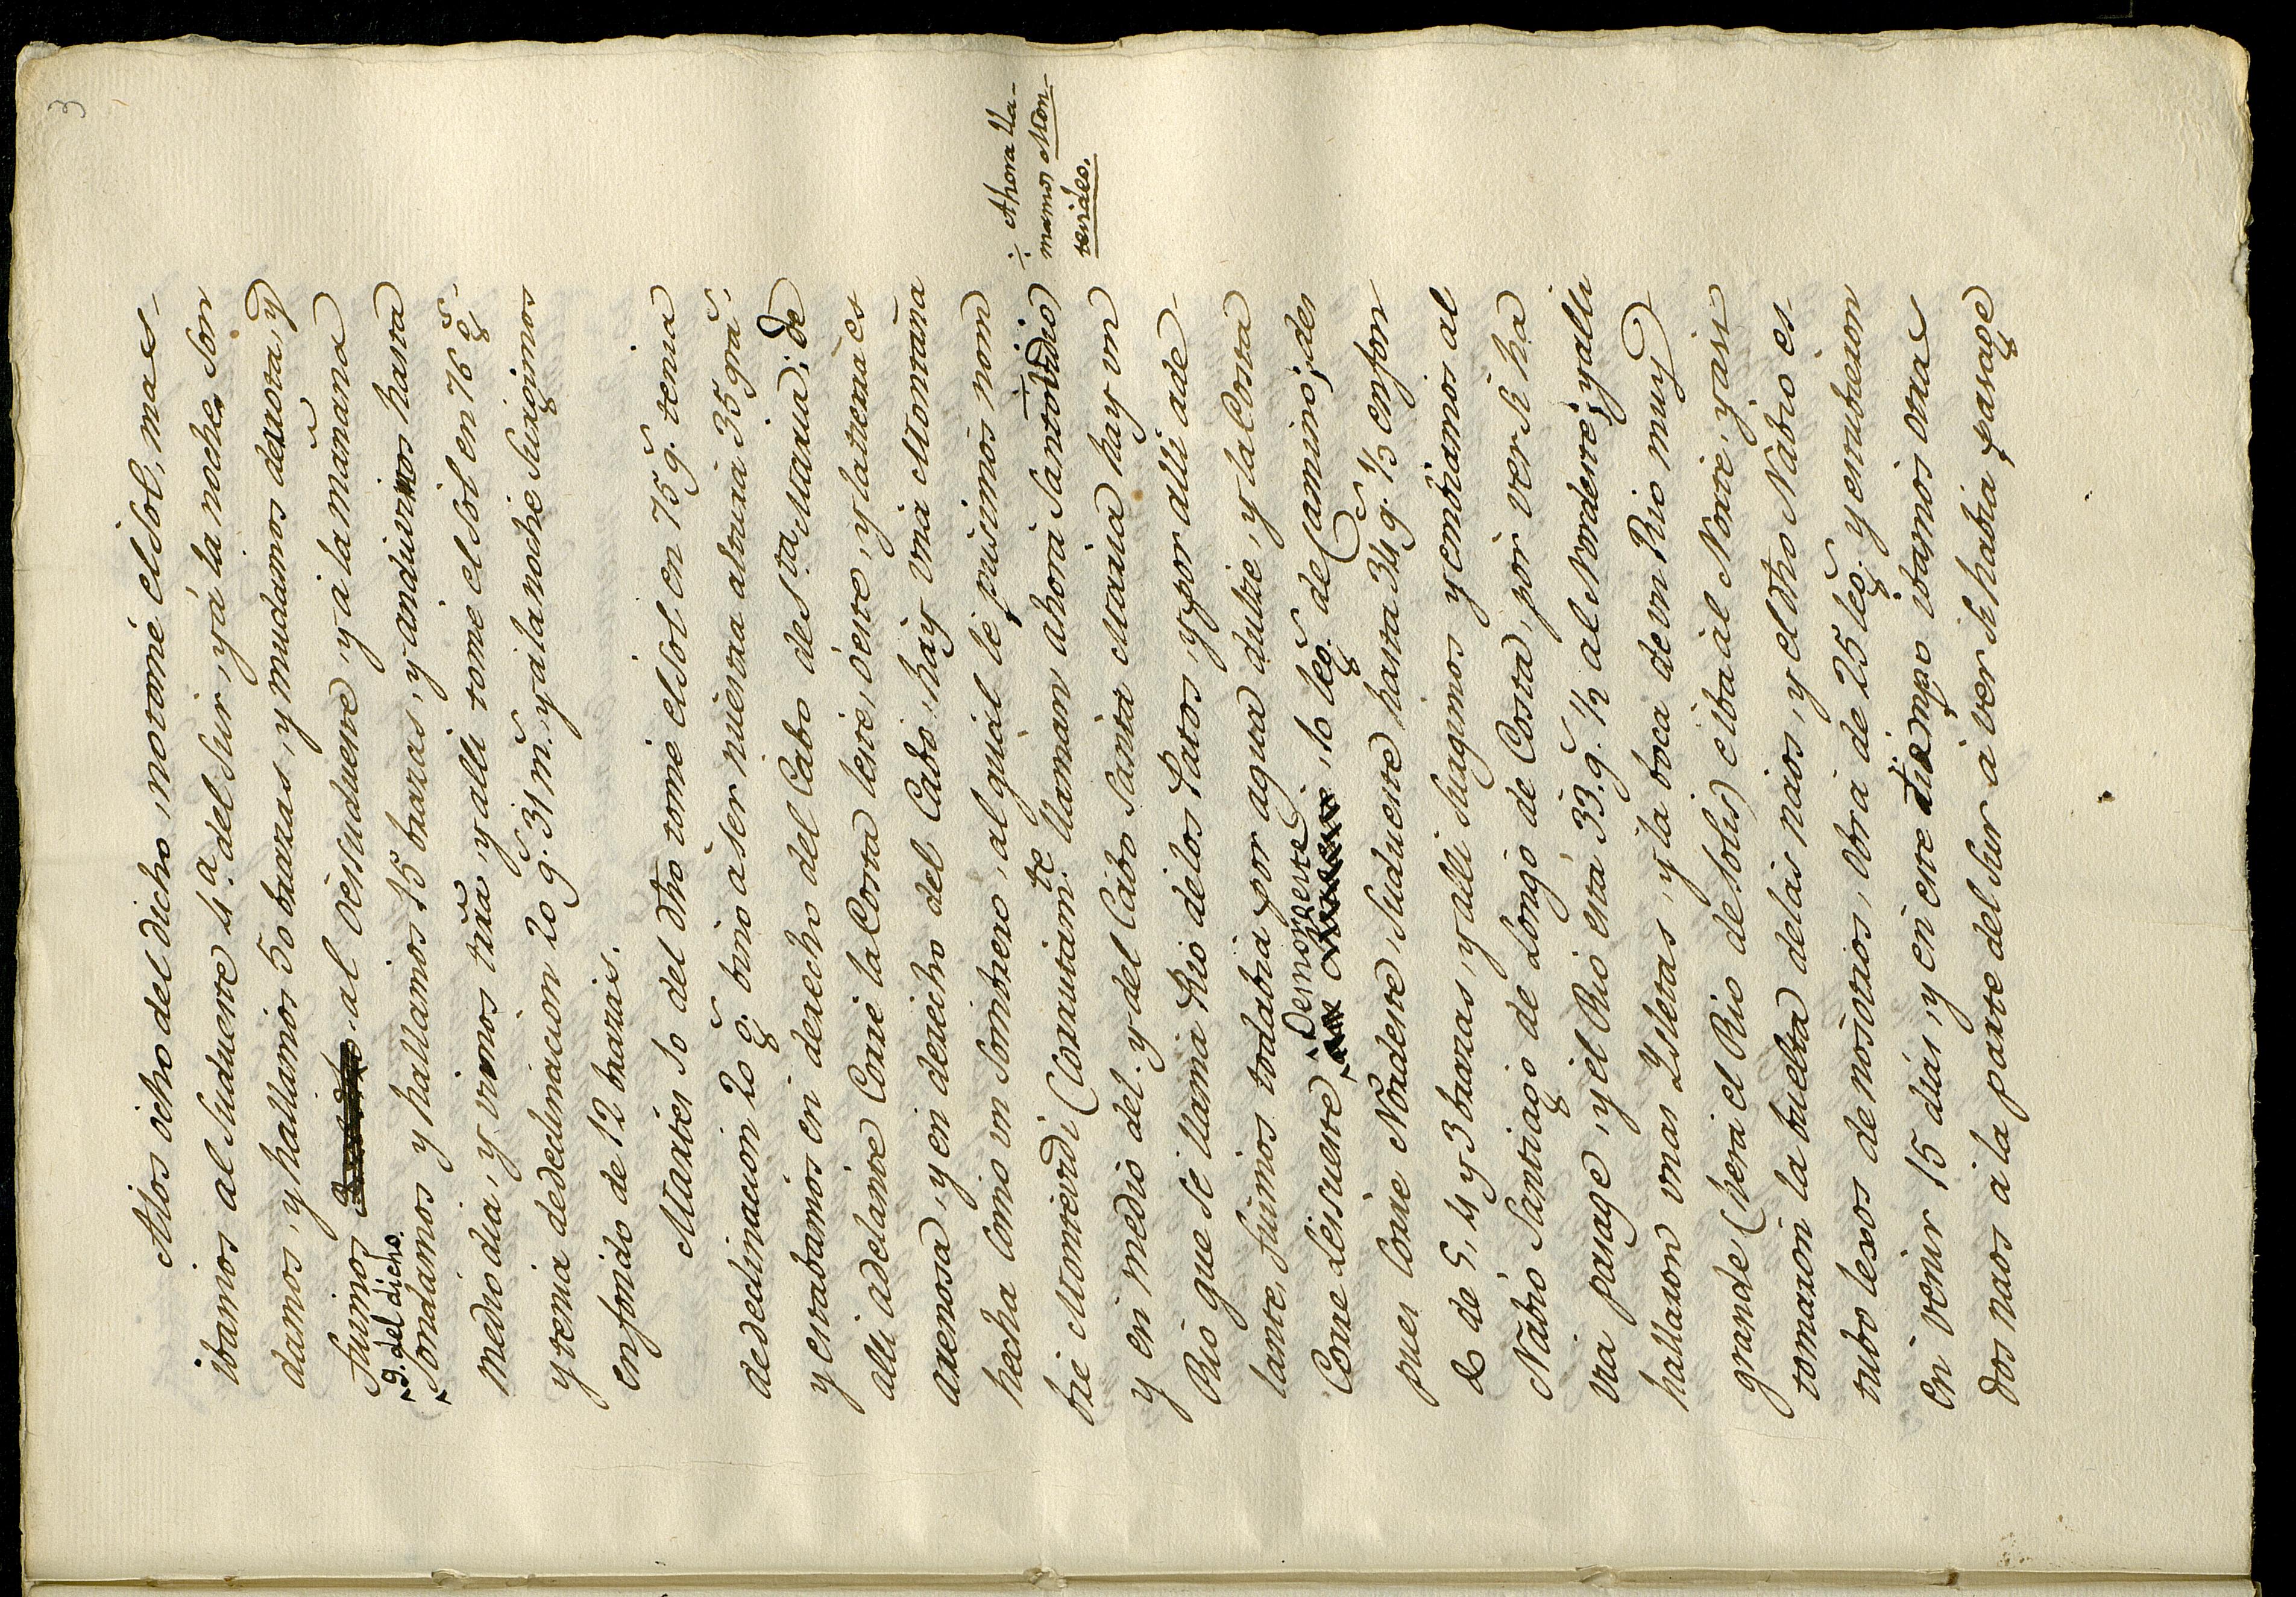 3
Alos ocho del dicho, no tomé el sol, mas
ibamos al Suduerte 4.ª del Sur, y á la noche, Son
damos, y hallamos 50 brazas, y mudamos derrota, y
fuimos al Oessudueste, y a la mañana
9. del dicho.
Sondamos y hallamos 15 brazas, y anduvimos hasta
medio dia, y vimos trrã, y alli tome el sol en 76 g.s
y tenia dedeclinacion 20 g.s 31 m.s y á la noche Surgimos
enfondo de 12 brazas.
Martes 10 del dho tome el sol en 75 g.s tenia
dedeclinacion 20 g.s bino a ser nuestra altura 35 gra.s
y estabamos en derecho del Cabo de S.ta Maria; de
alli adelante Corre la Costa leste, oeste, y la tierra es
arenosa, y en derecho del Cabo, hay una Montaña
hecha Como un Sombrero, al qual le pusimos nom
bre Montevidi (Corrutam.te llaman ahora Santo vidio) ÷
÷ Ahora lla-
mamos Mon-
tevideo.
y en medio del. y del Cabo Santa Maria hay un
Rio que se llama Rio delos Patos, y por alli ade
lante, fuimos todabia por agua dulze, y la Costa
Corre Lesueste, Oesnoroeste, 10 leg.s de Camino, des
pues Corre Nordeste, Sudueste hasta 34 g.s 1/3 en fon
do de 5, 4 y 3 brazas, y alli Surgimos y embiamos al
Nabio Santiago de Longo de Costa, por ver si ha
via pasage, y el Rio está 33. g.s 1/2 al Nordeste, y alli
hallaron unas Ysletas, y la boca de un Rio muy
grande, (hera el Rio de Solis) e iba al Norte, y asi
tomaron la buelta delas naos, y el dho Nabio es
tubo lexos de nosotros, obra de 25 leg.s y estubieron
en venir 15 dias, y en este tiempo ibamos otras
dos naos a la parte del Sur á ver si habia pasage